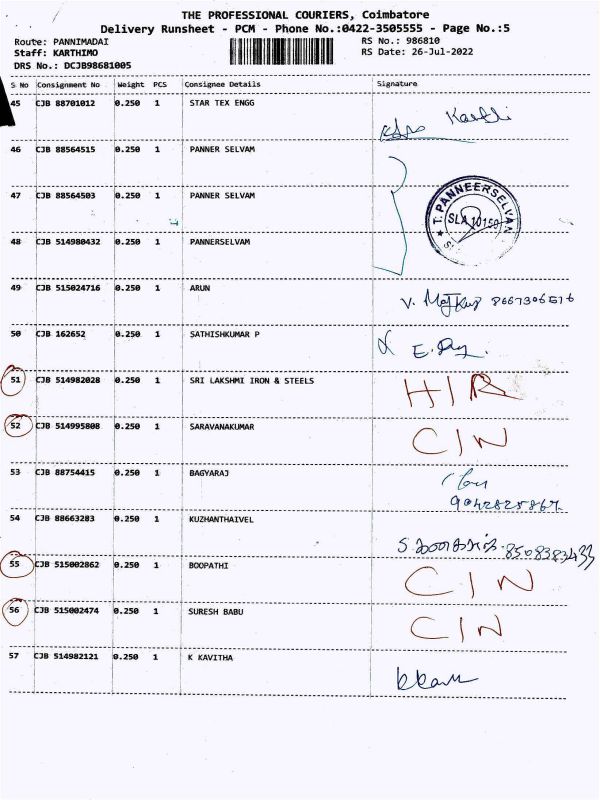 THE PROFESSIONAL COURIERS, Coimbatore
Delivery Runsheet - PCM - Phone No.:0422-3505555 - Page No.:5
Route: PANNIMADAI
Staff: KARTHIMO
DRS No.: DCJB98681005
RS No.: 986810
RS Date: 26-Jul-2022
S No Consignment No Weight PCS Consignee Details Signature
45 CJB 88701012 0.250 1 STAR TEX ENGG
46 CJB 88564515 0.250 1 PANNER SELVAM
47 CJB 88564503 0.250 1 PANNER SELVAM
T. PANNEERSELVAN
SLA 10150
48 CJB 514980432 0.250 1 PANNERSELVAM
49 CJB 515024716 0.250 1 ARUN
V. 8667306516
50 CJB 162652 0.250 1 SATHISHKUMAR P
51 CJB 514982028 0.250 1 SRI LAKSHMI IRON & STEELS HIR
52 CJB 514995808 0.250 1 SARAVANAKUMAR CIN
53 CJB 88754415 0.250 1 BAGYARAJ
9042825867
54 CJB 88663283 0.250 1 KUZHANTHAIVEL
8508383433
55 CJB 515002862 0.250 1 BOOPATHI CIN
56 CJB 515002474 0.250 1 SURESH BABU CIN
57 CJB 514982121 0.250 1 K KAVITHA